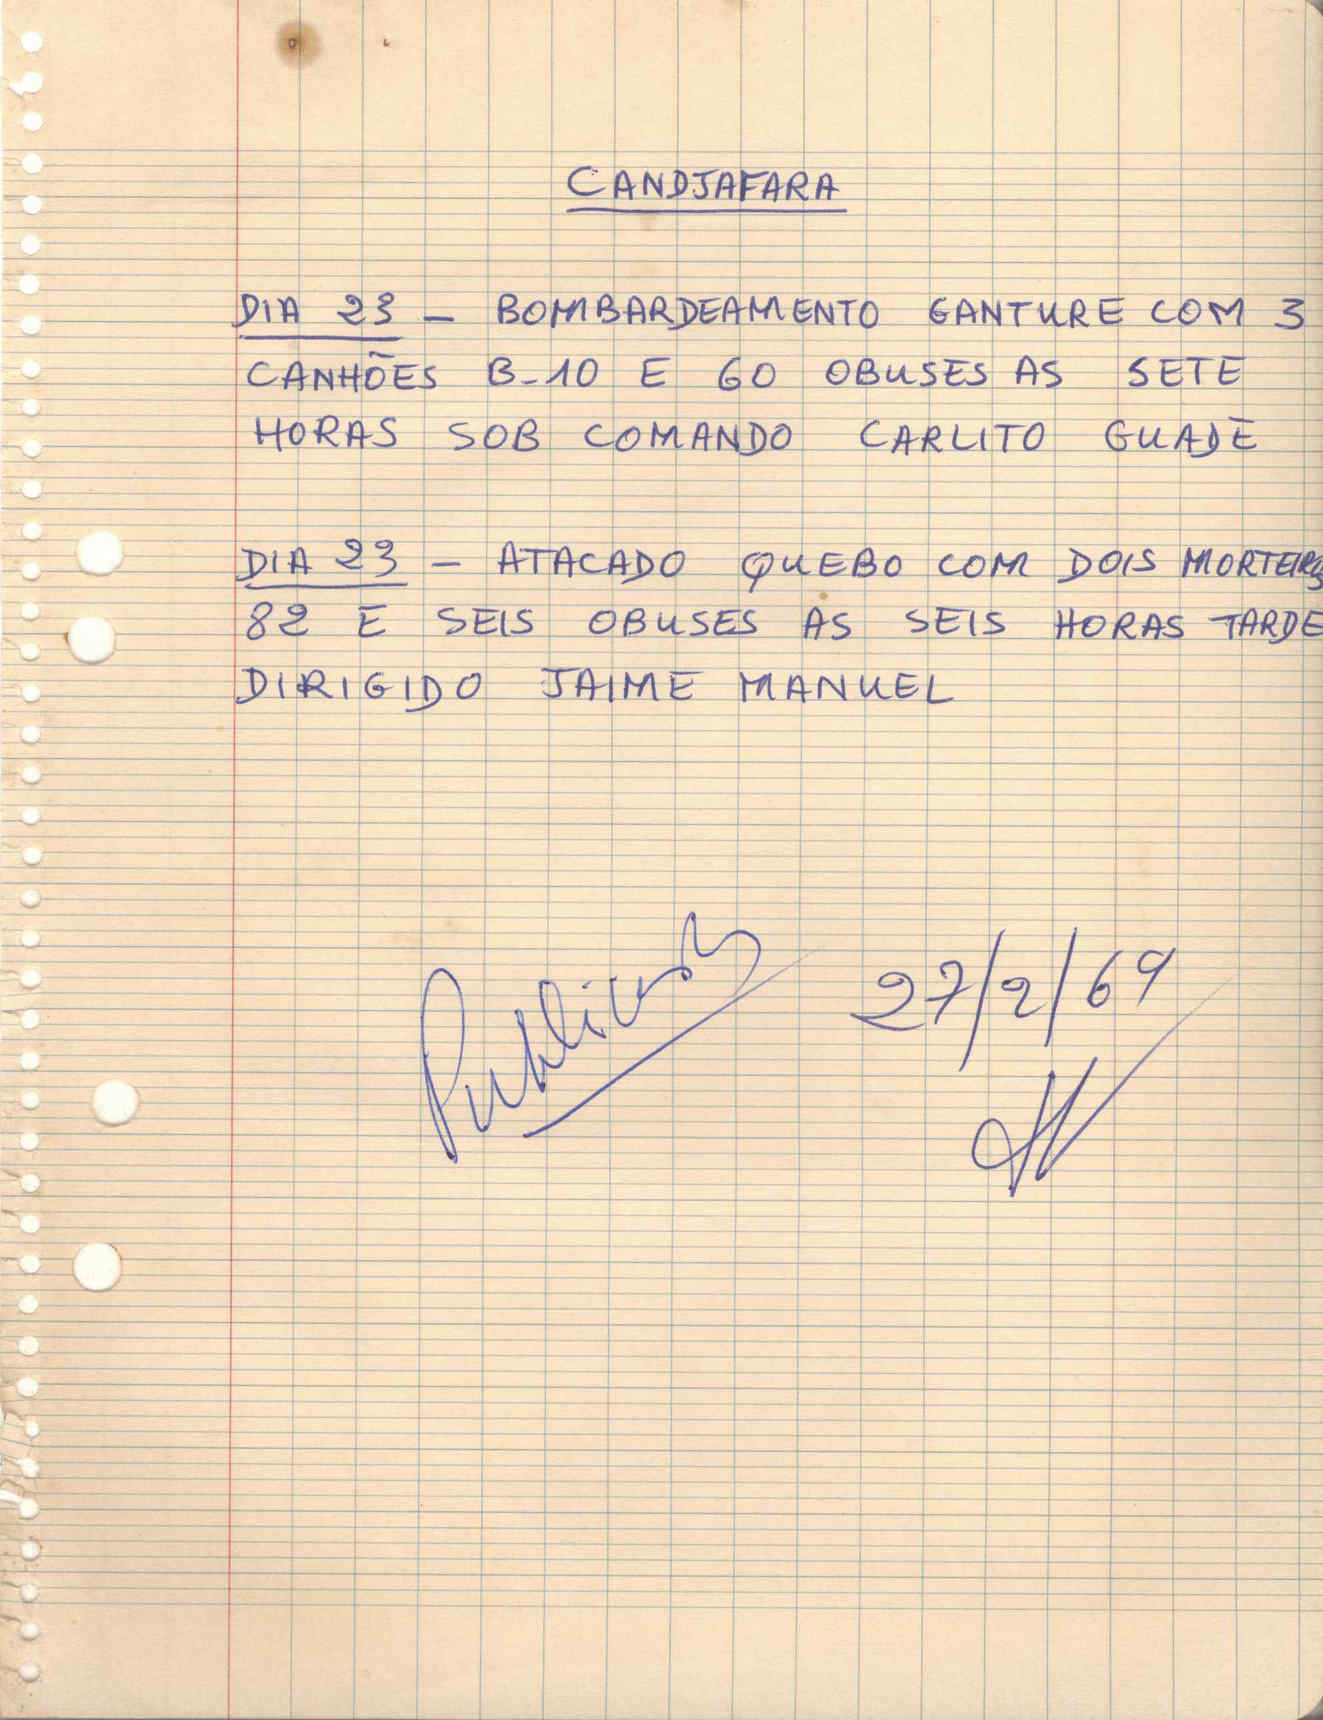 CANDJAFARA
DIA 23 – BOMBARDEAMENTO GANTURE COM 3
CANHÕES B-10 E 60 OBUSES AS SETE
HORAS SOB COMANDO CARLITO GUADE
DIA 23 – ATACADO QUEBO COM DOIS MORTEIROS
82 E SEIS OBUSES AS SEIS HORAS TARDE
DIRIGIDO JAIME MANUEL
27/2/69